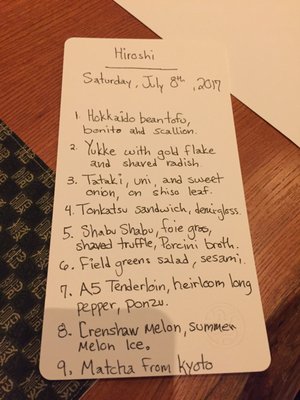 Hiroshi
Saturday, July 8th, 2017
1. Hokkaido bean tofu,
bonito and scallion.
2. Yukke with gold flake
and shaved radish.
3. Tataki, uni, and sweet
onion, on shiso leaf.
4. Tonkatsu sandwich, demi-glass.
5. Shabu Shabu, foie gras,
shaved truffle, Porcini broth.
6. Field greens salad, sesami.
7. A5 Tenderloin, heirloom long
pepper, ponzu.
8. Crenshaw melon, summer
melon Ice.
9. Matcha From Kyoto